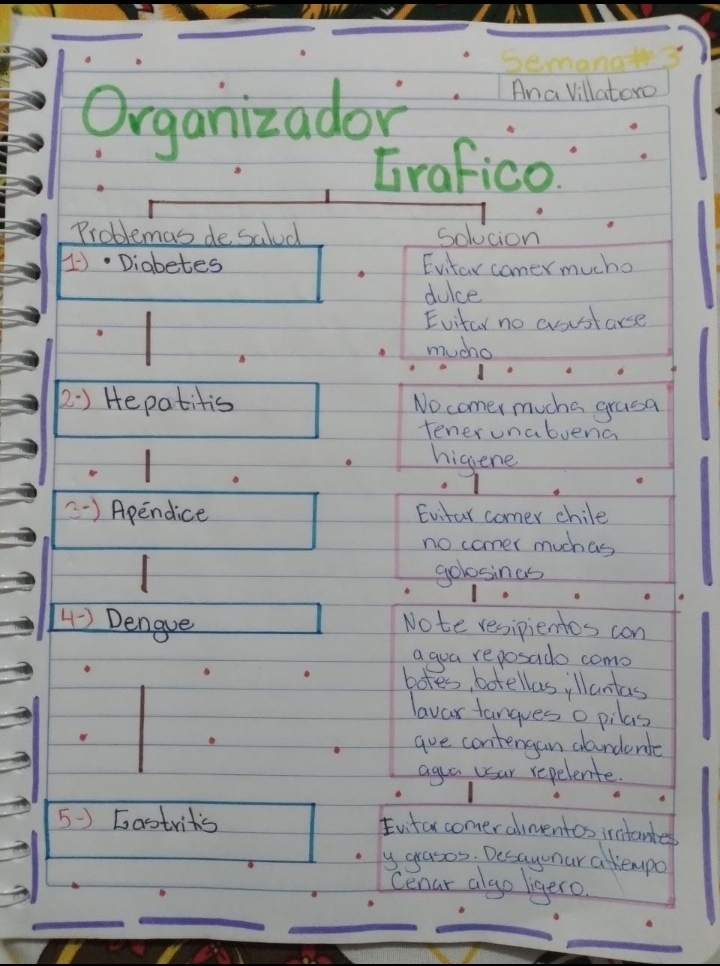 Semana # 3
Ana Villatoro
Organizador
Grafico.
Problemas de Salud
Solucion
1-) • Diabetes
Evitar comer mucho
dulce
Evitar no asustarse
mucho
2-) Hepatitis
No comer mucha grasa
tener una buena
higiene
3-) Apéndice
Evitar comer chile
no comer muchas
golosinas
4-) Dengue
No te resipientos con
agua reposado como
botes, botellas, y llantas
lavar tanques o pilas
que contengan abundante
agua usar repelente.
5-) Gastritis
Evitar comer alimentos irritantes
y grasos. Desayunar a tiempo
Cenar algo ligero.